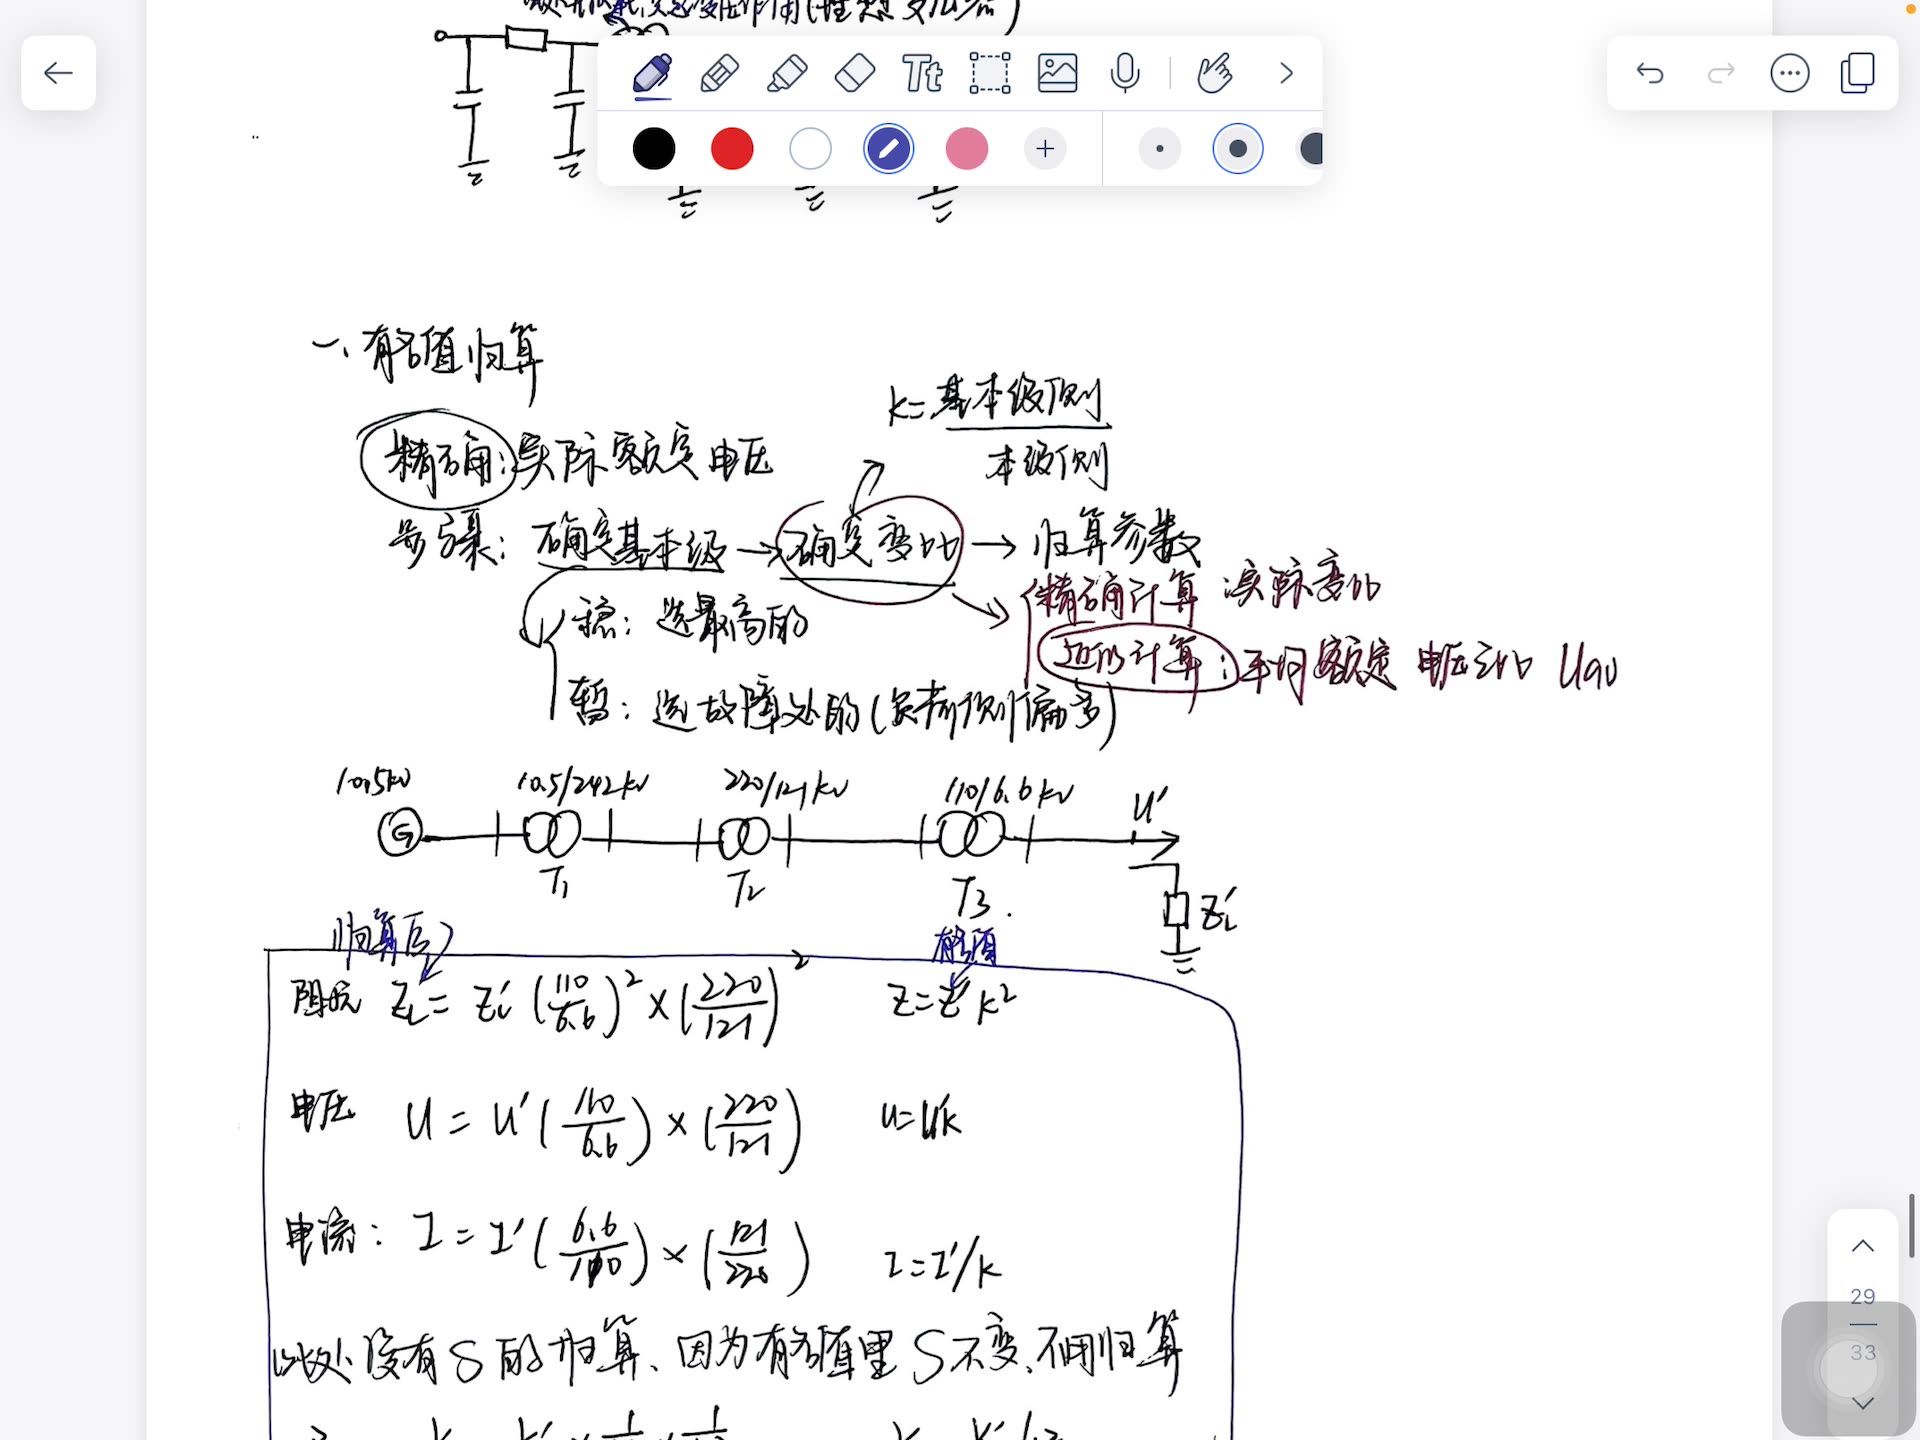 Tt
一、有名值归算
k=基本级侧/本级侧
精确:实际额定电压
步骤: 确定基本级→确定变比→归算参数
精确计算 :实际变比
稳: 选最高的
近似计算:平均额定 电压之比 Uav
暂: 选故障处的(负荷预测偏多)
10.5kV 10.5/242kV 220/121kV 110/6.6kV U'
G
T₁ T₂ T₃. ZL'
归算后 有名值
阻抗 ZL = ZL' (110/6.6)² × (220/121)² Z=Z'k²
电压 U = U' (110/6.6) × (220/121) U=U'k
电流: I = I' (6.6/110) × (121/220) I=I'/k
此处没有S的归算、因为有名值里S不变、不用归算
29
33